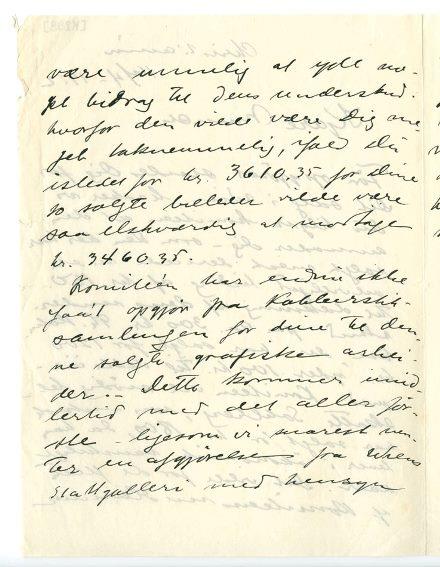 være umulig at yde no-
get bidrag til dens undersku[d]
hvorfor den vilde være Dig me-
get taknemmelig, ifald Du
istedetfor kr. 3610.35 for Dine
to solgte billeder vilde være
saa elskværdig at modtage
kr. 3460.35.
Komitéen har endnu ikke
faa't opgjør fra Kobberstik-
samlingen for dine til den-
ne solgte grafiske arbei-
der. – Dette kommer imid-
lertid med det aller før-
ste – ligesom vi snarest ven-
ter en afgjørelse fra Wiens
Stattgalleri med hensyn